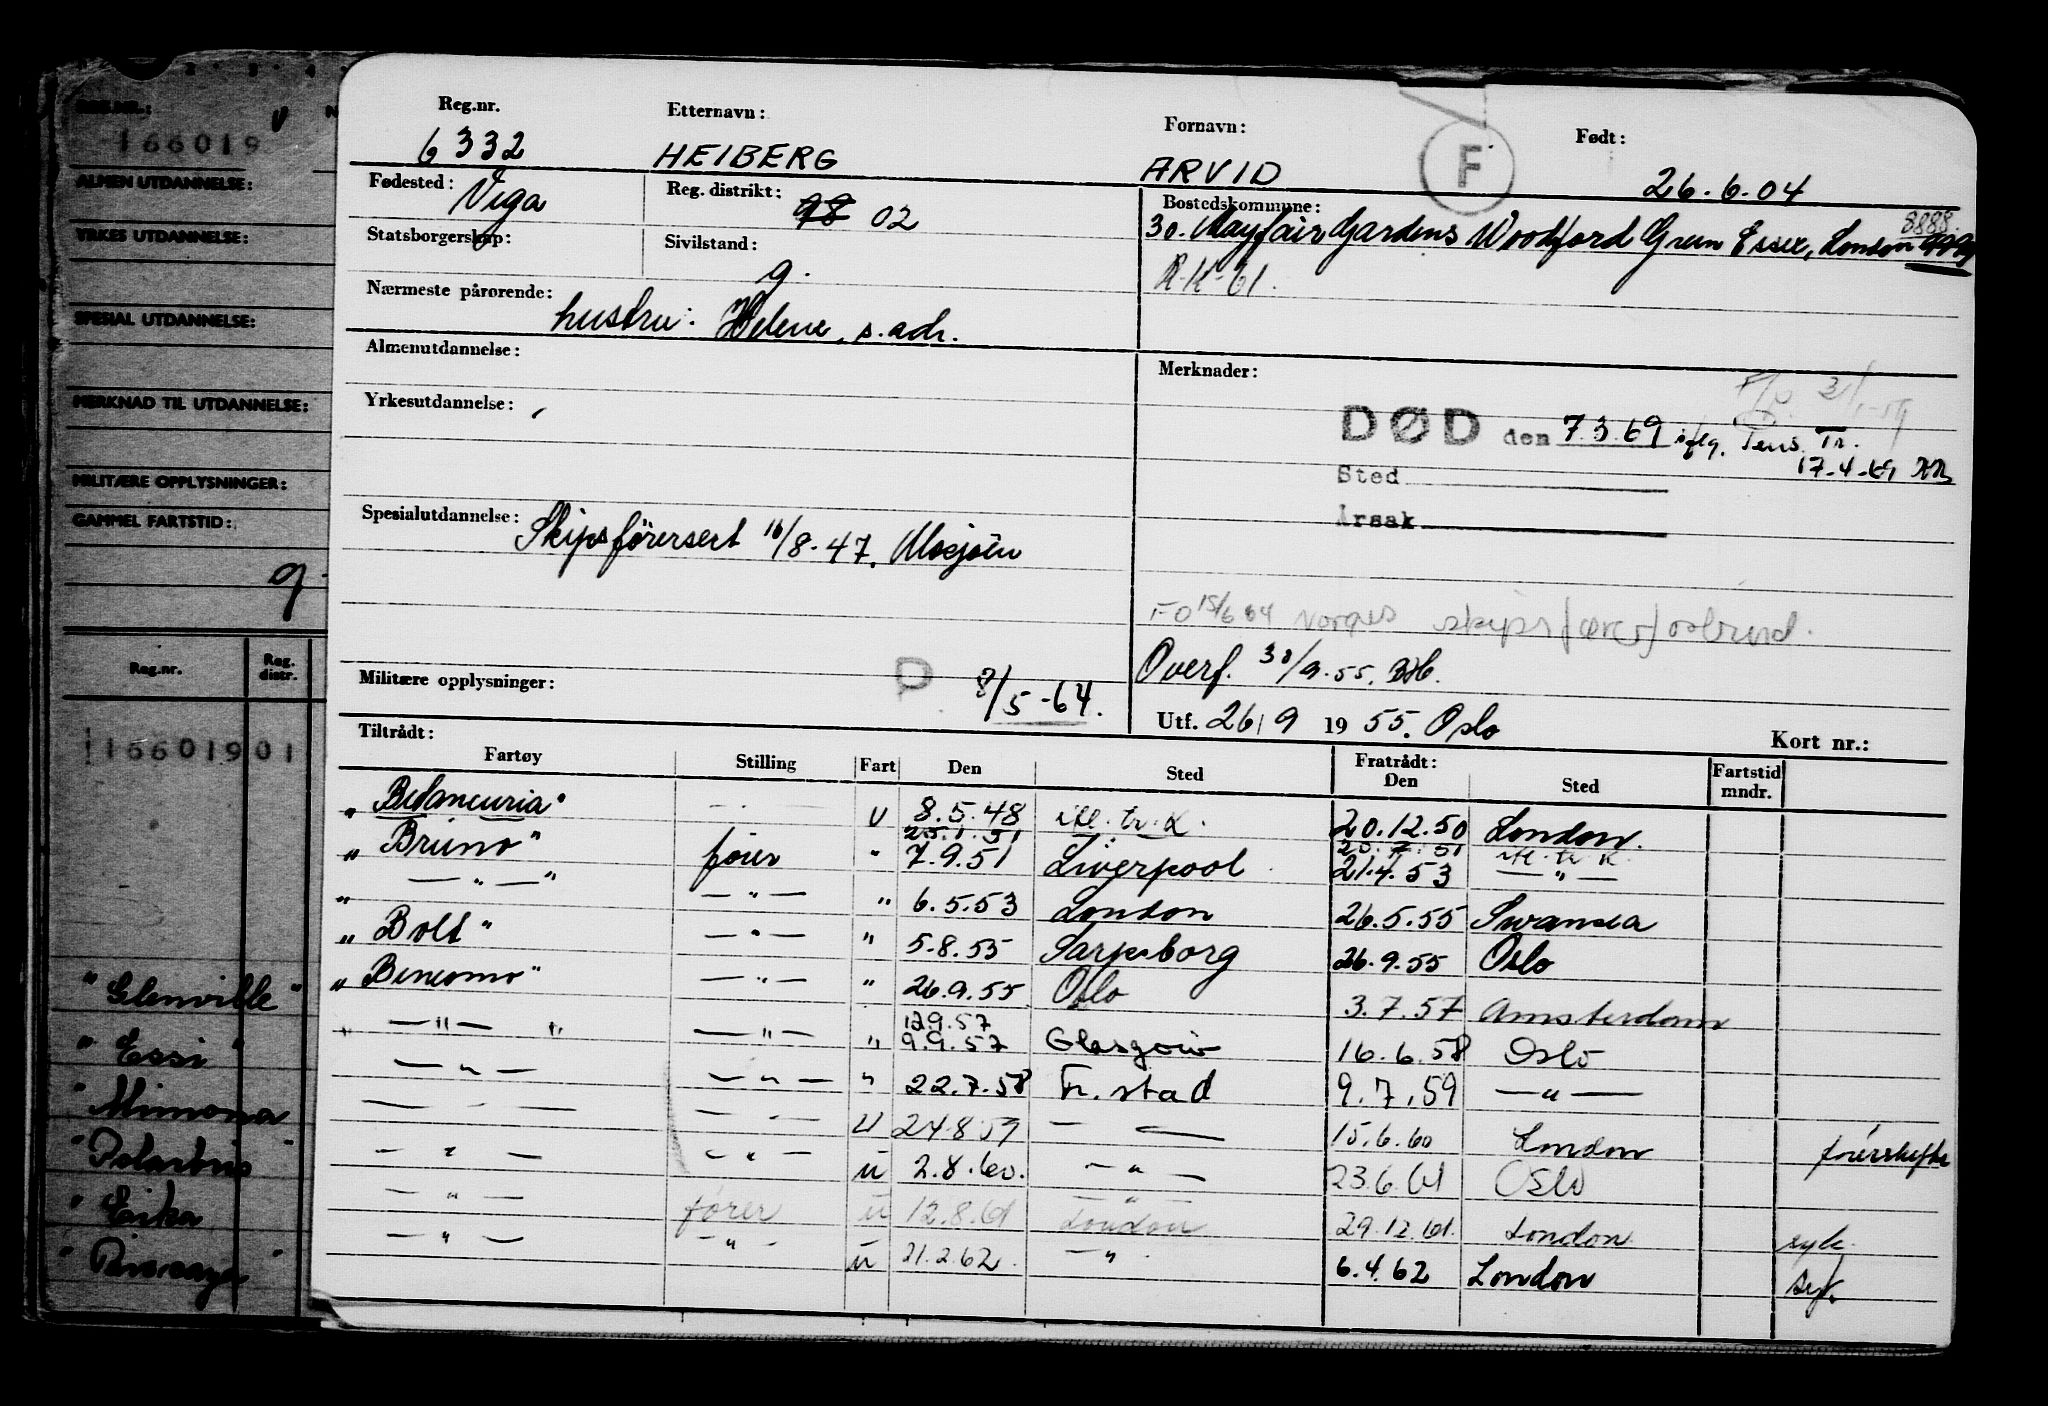 Reg.nr. Etternavn: Fornavn: F Født:
6332 HEIBERG ARVID 26.6.04
Fødested: Vega Reg. distrikt: 98 02 Bostedskommune: 8888
30. Mayfair Gardens Woodford Green Essex, London
Statsborgerskap: Sivilstand: g. R-K-61.
Nærmeste pårørende: hustru: Helene, s. adr.
Almenutdannelse: Merknader:
Yrkesutdannelse:
DØD den 7.3.69 iflg. Pens. Tr.
17-4-69
Sted
Årsak
Spesialutdannelse: Skipsförersert 16/8-47. Mosjöen
FO 15/6 64 Norges skipsførerforbund.
Overf. 30/9-55.
Militære opplysninger: D 8/5-64.
Utf. 26/9 1955. Oslo Kort nr.:
Tiltrådt: Fratrådt:
Fartøy Stilling Fart Den Sted Den Sted Fartstid mndr.
"Betancuria" — . — U 8.5.48 itl. tr. k. 20.12.50 London.
25.1.51 20.7.51 itl. tr. k.
"Bruno" fører " 7.9.51 Liverpool 21.4.53 — " —
" — " — " — " — " 6.5.53 London 26.5.55 Swansea
"Bolt" — " — " 5.8.55 Sarpsborg 26.9.55 Oslo
"Bencomo" — " — " 26.9.55 Oslo 3.7.57 Amsterdam
12.9.57
" — " — " — " — " 9.9.57 Glasgow 16.6.58 Oslo
— " — — " — " 22.7.58 Fr.stad 9.7.59 — " —
— — — — " — U 24.8.59 — — 15.6.60 London førerhefte
— " — — " — U 2.8.60. — " — 23.6.61 Oslo
— " — fører U 12.8.61 London 29.12.61. London syk.
— " — — " — U 21.2.62. — " — 6.4.62 London syk.
REG.NR.:
166019
ALMEN UTDANNELSE:
YRKES UTDANNELSE:
SPESIAL UTDANNELSE:
MERKNAD TIL UTDANNELSE:
MILITÆRE OPPLYSNINGER:
GAMMEL FARTSTID:
g.
Reg.nr. Reg. distr.
16601901
"Glenville"
"Essi"
"Mimona"
"Polarbris"
"Erika"